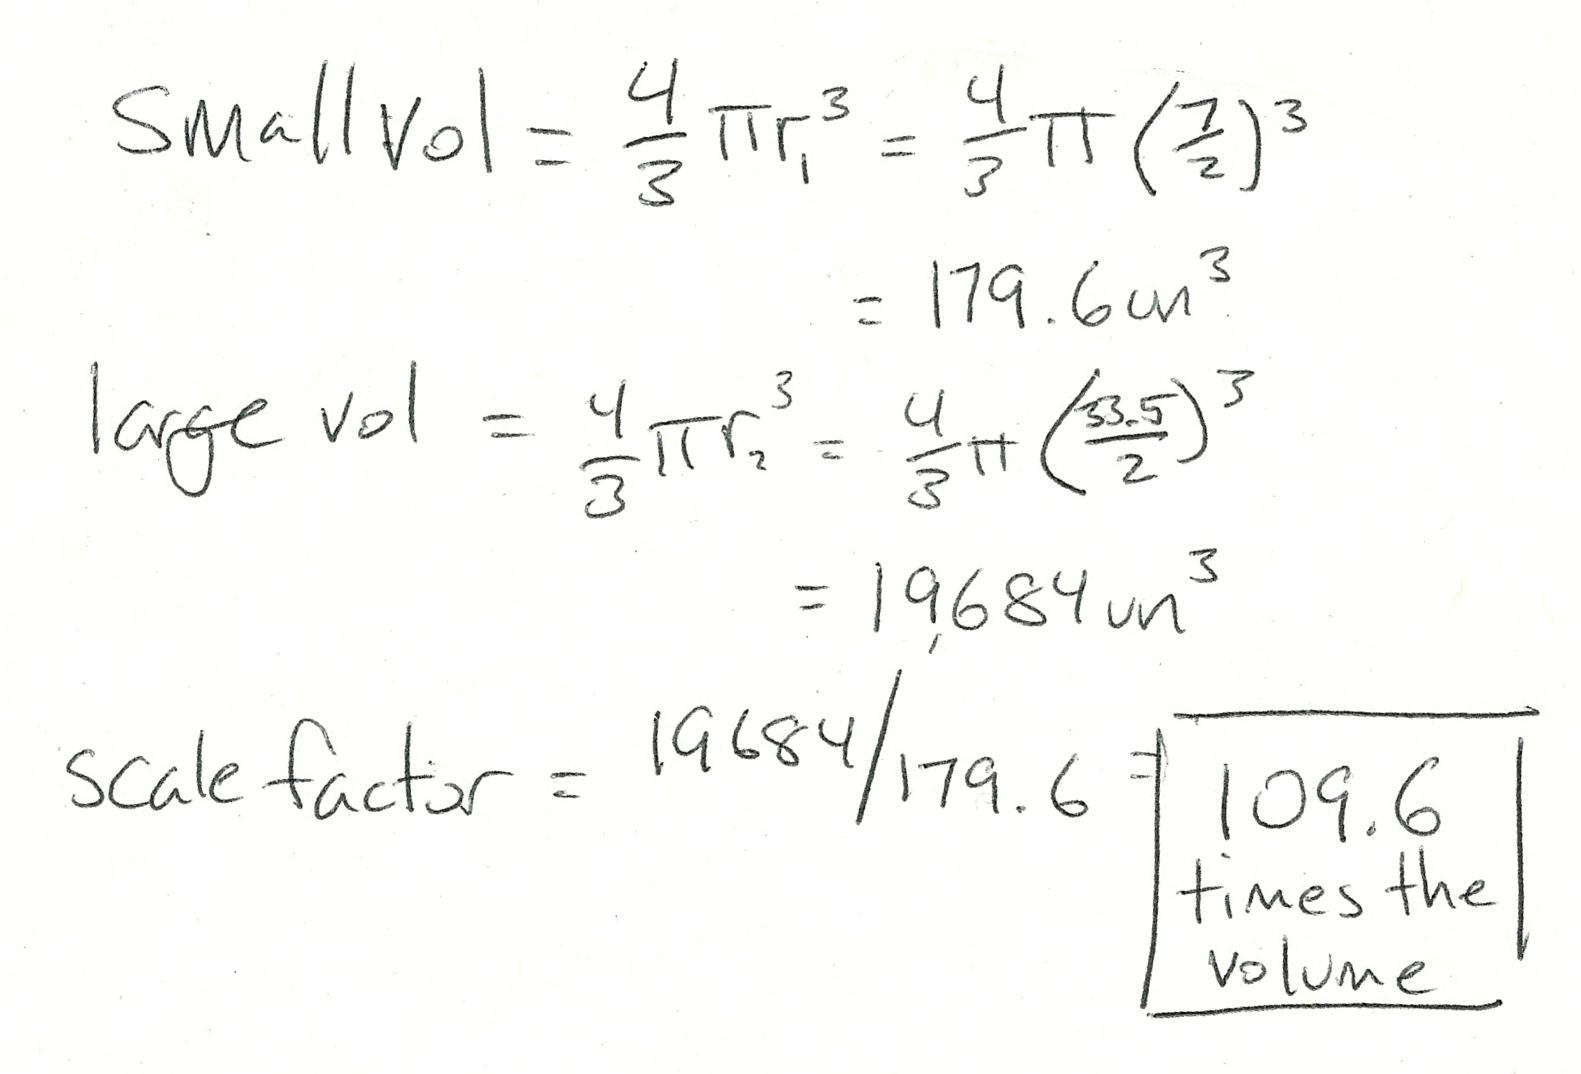 Small vol = 4/3 πr₁³ = 4/3 π (7/2)³
= 179.6 un³
large vol = 4/3 πr₂³ = 4/3 π (33.5/2)³
= 19,684 un³
scale factor = 19684/179.6 = 109.6
times the
volume